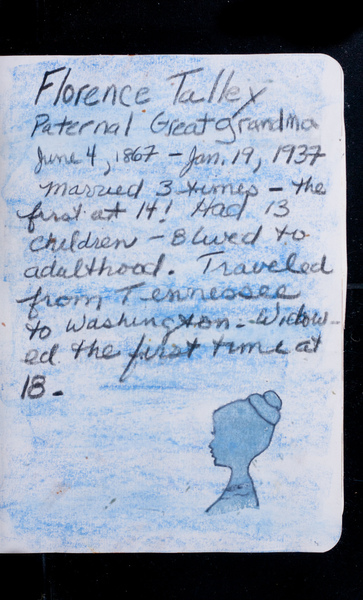 Florence Talley
Paternal Great grandma
June 4, 1867 - Jan. 19, 1937
married 3 times - the
first at 14! Had 13
children - 8 lived to
adulthood. Traveled
from Tennessee
to Washington - Widow-
ed the first time at
18.